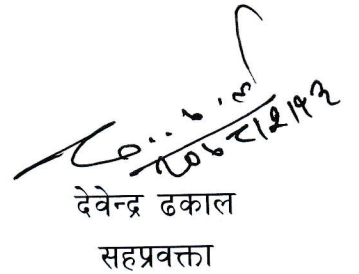 २०७८।२।५३
देवेन्द्र ढकाल
सहप्रवक्ता